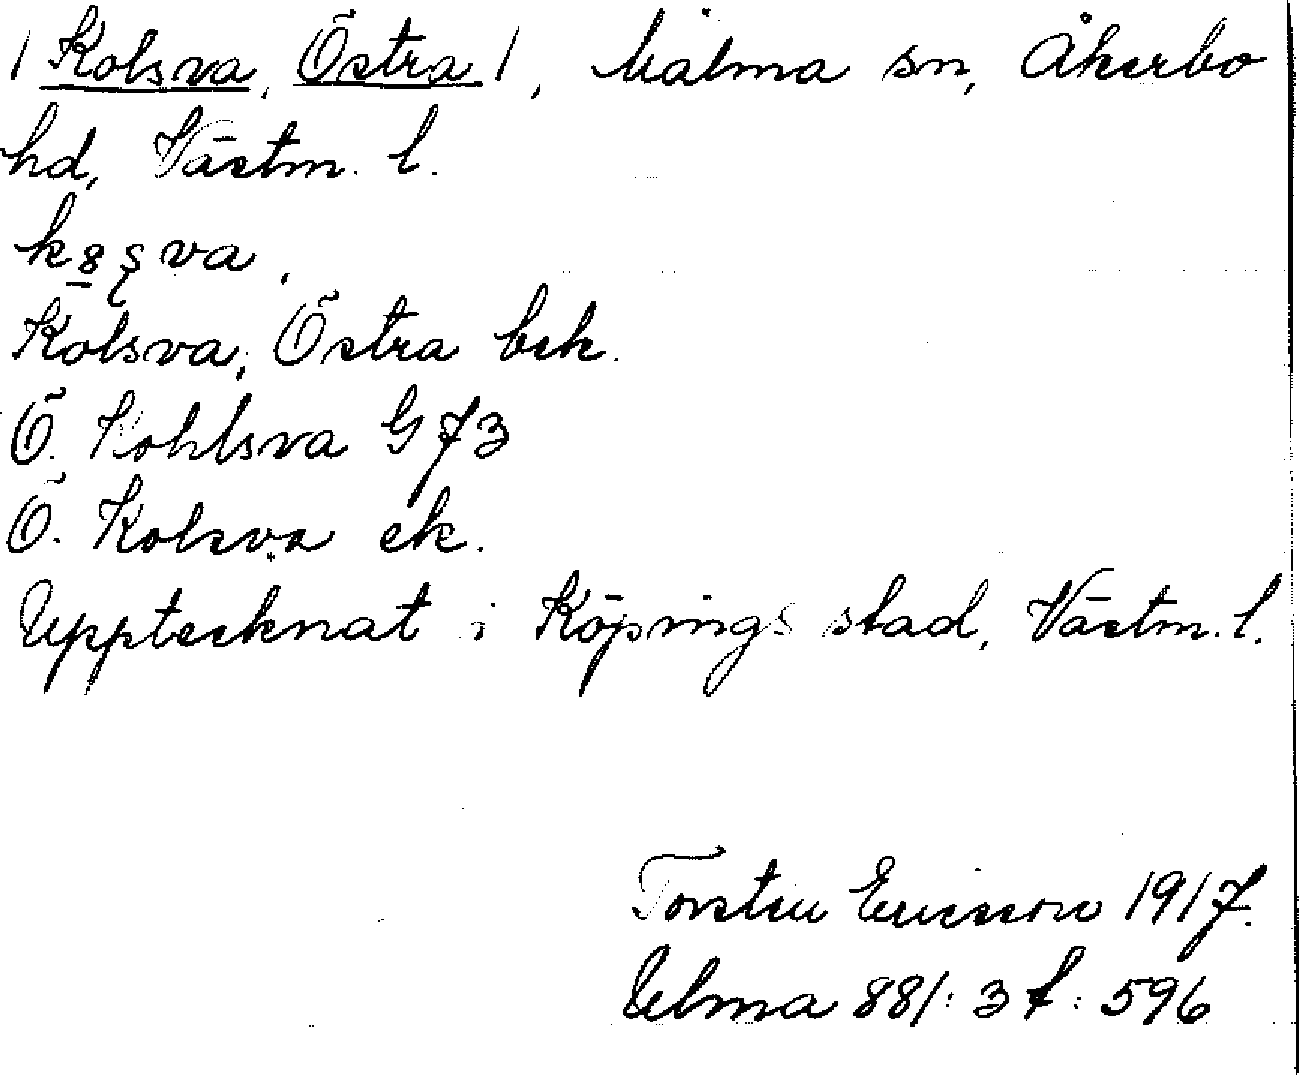 /Kolsva, Östra/, Målma sn, Åkerbo
hd, Västm. l.
k8̲ʂva.
Kolsva, Östra bek.
Ö. Kohlsva G 73
Ö. Kolsva ek.
Upptecknat i Köpings stad, Västm. l.
Torsten Ericsson 1917.
Ulma 881: 3 f: 596